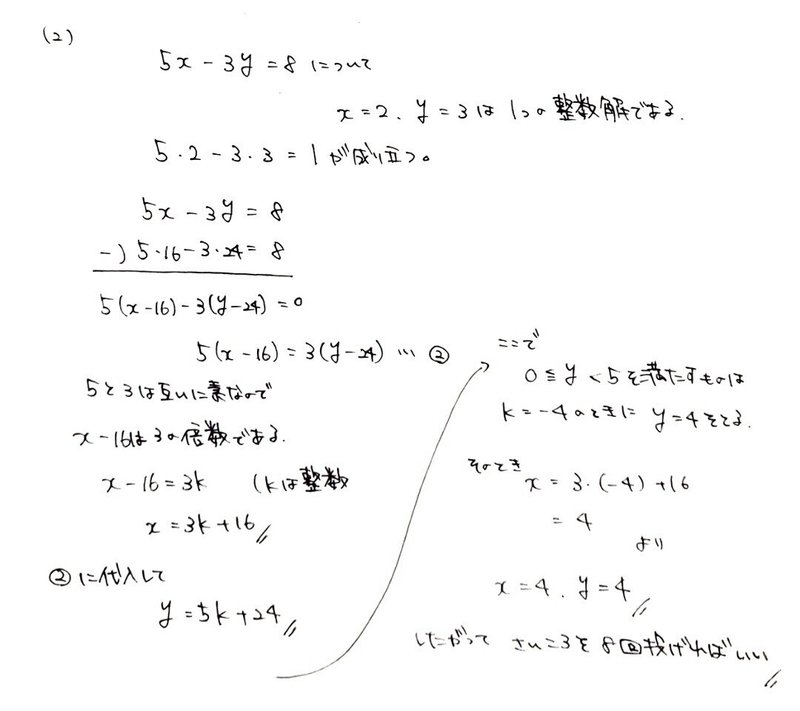 (2)
5x - 3y = 8 について
x = 2、y = 3 は 1つの整数解である.
5・2 - 3・3 = 1 が成り立つ。
5x - 3y = 8
-) 5・16 - 3・24 = 8
5(x-16) - 3(y-24) = 0
5(x-16) = 3(y-24) … ②
5と3は互いに素なので
x-16は3の倍数である.
x - 16 = 3k (kは整数
x = 3k + 16
②に代入して
y = 5k + 24
ここで
0 ≦ y < 5 を満たすものは
k = -4 のときに y = 4 をとる.
そのとき
x = 3・(-4) + 16
= 4
より
x = 4、y = 4
したがって さいころを 8回投げればいい